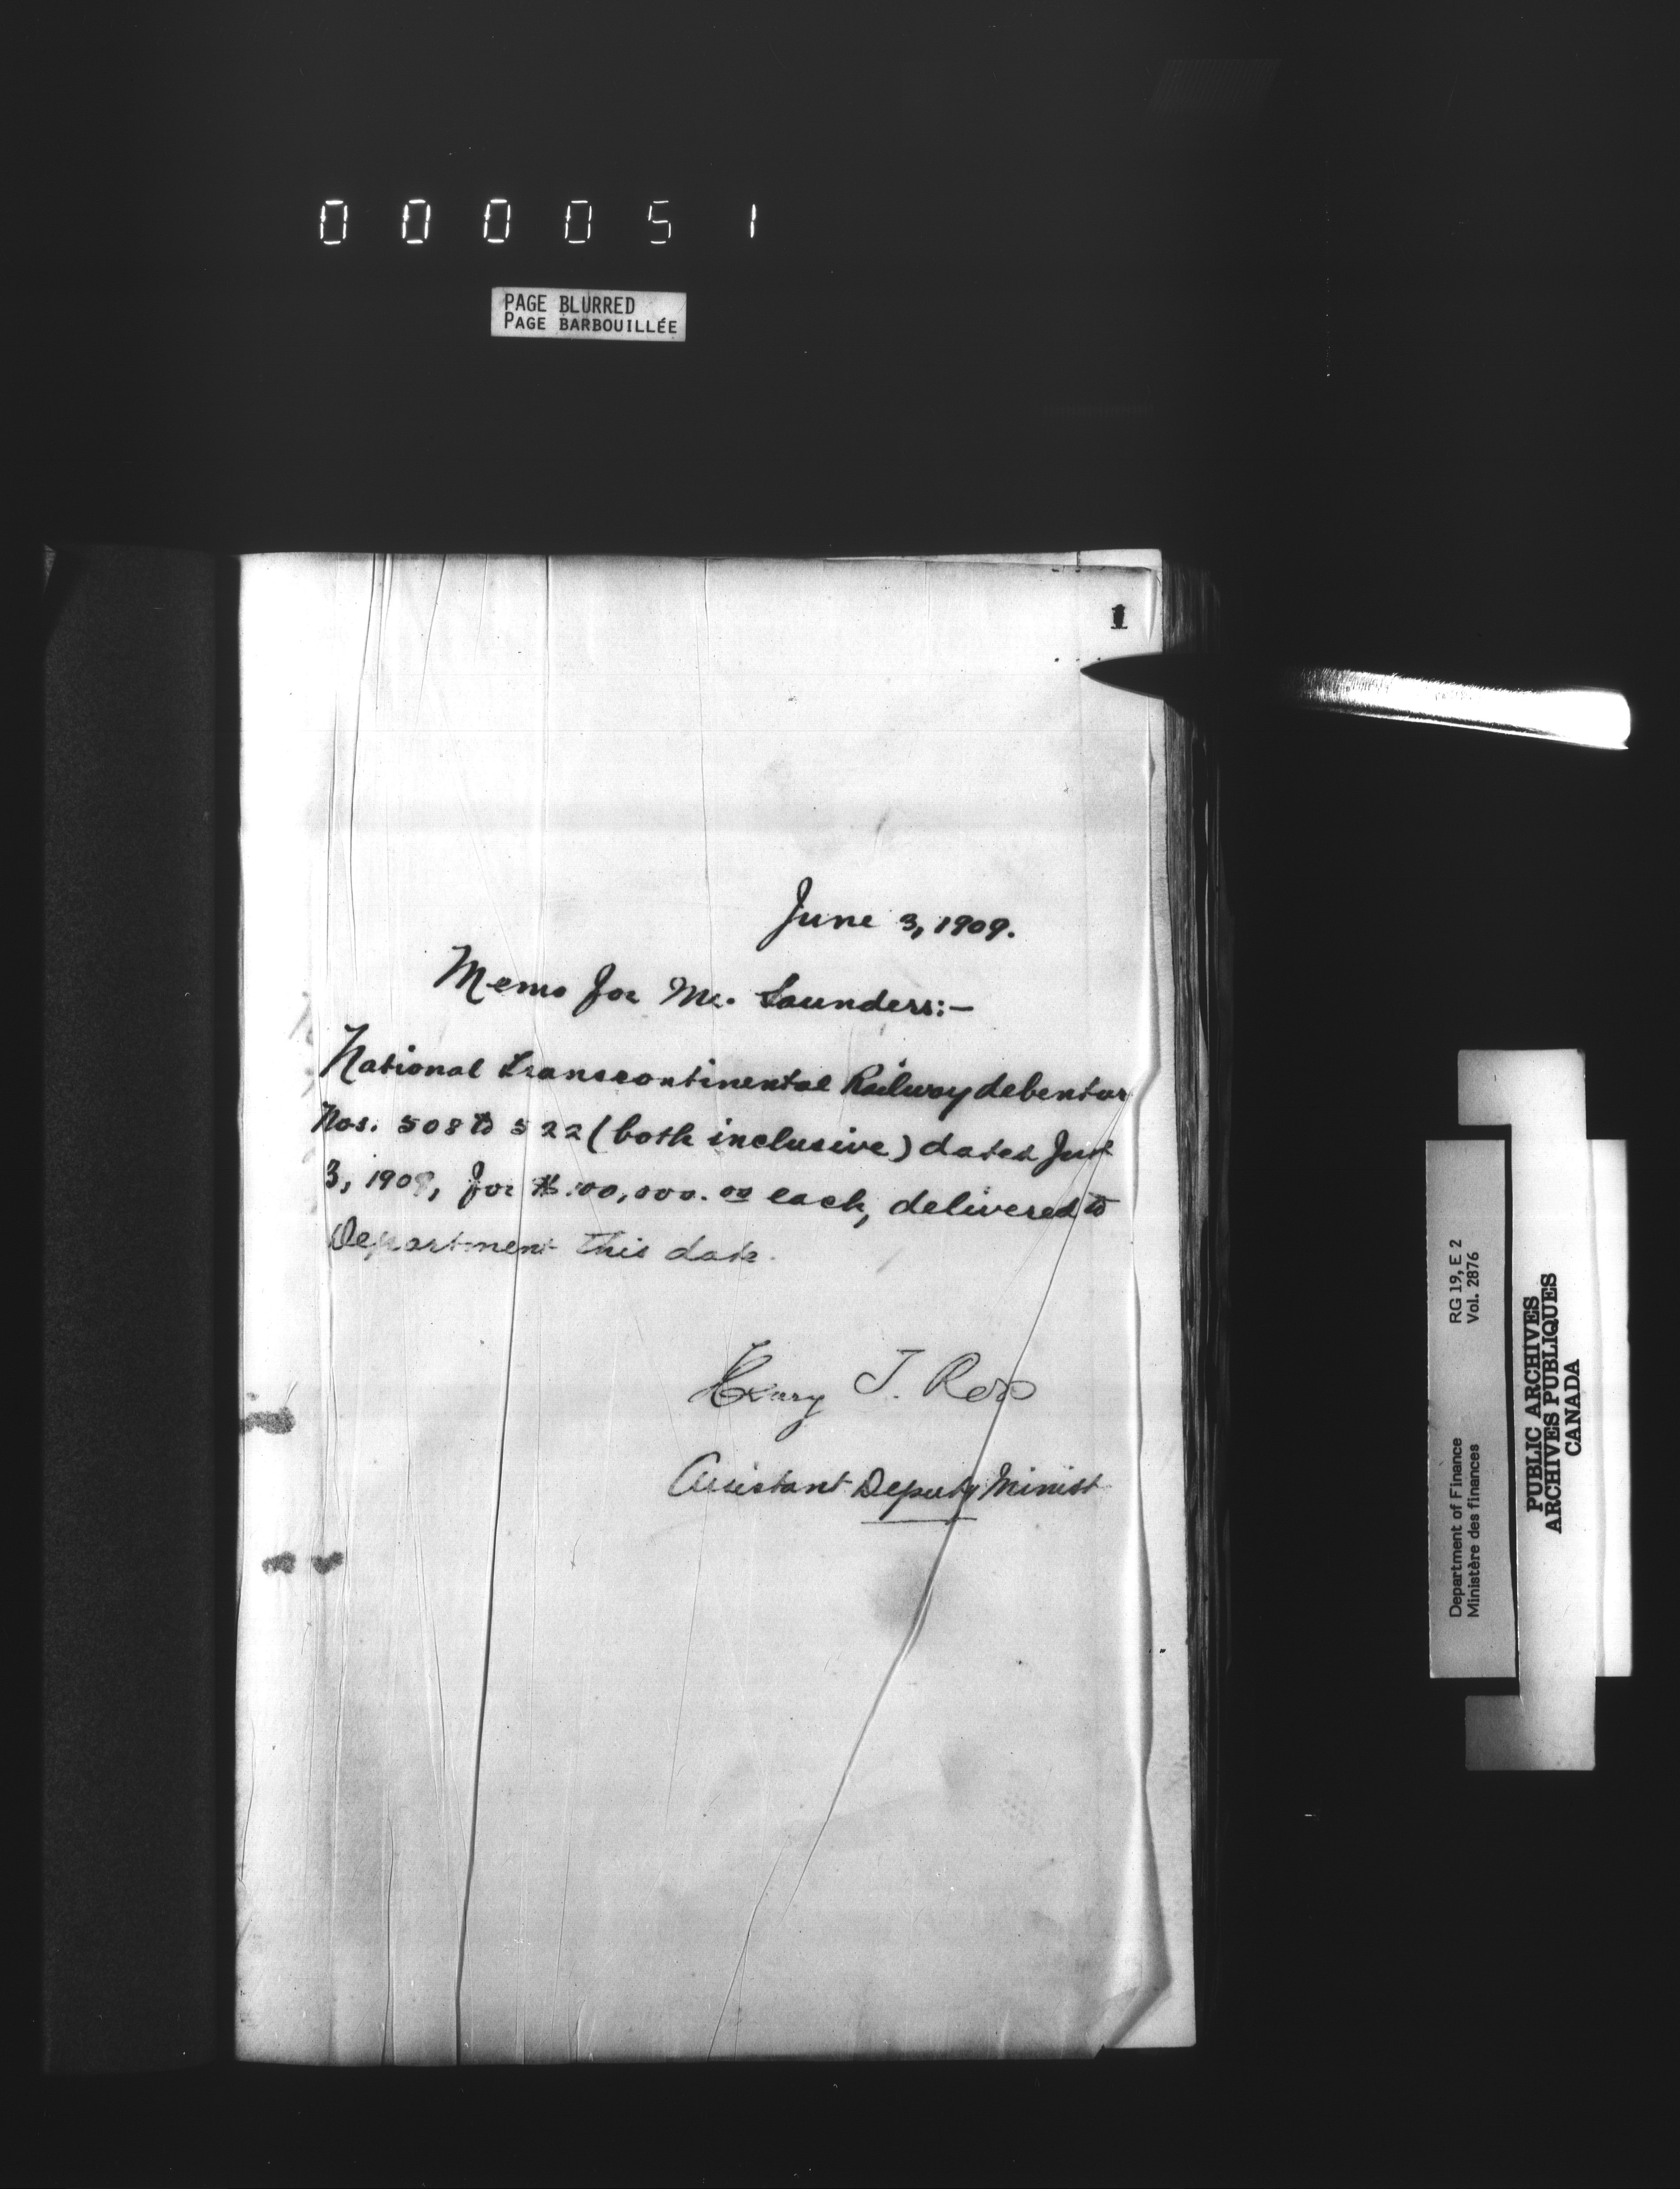 000051
PAGE BLURRED
PAGE BARBOUILLÉE
1
June 3, 1909.
Memo for Mr. Saunders:—
National Transcontinental Railway debentur
Nos. 508 to 522 (both inclusive) dated June
3, 1909, for $100,000.00 each, delivered to
Department this date.
Henry T. Ross
Assistant Deputy Minist
Department of Finance RG 19, E 2
Ministère des finances Vol. 2876
PUBLIC ARCHIVES
ARCHIVES PUBLIQUES
CANADA